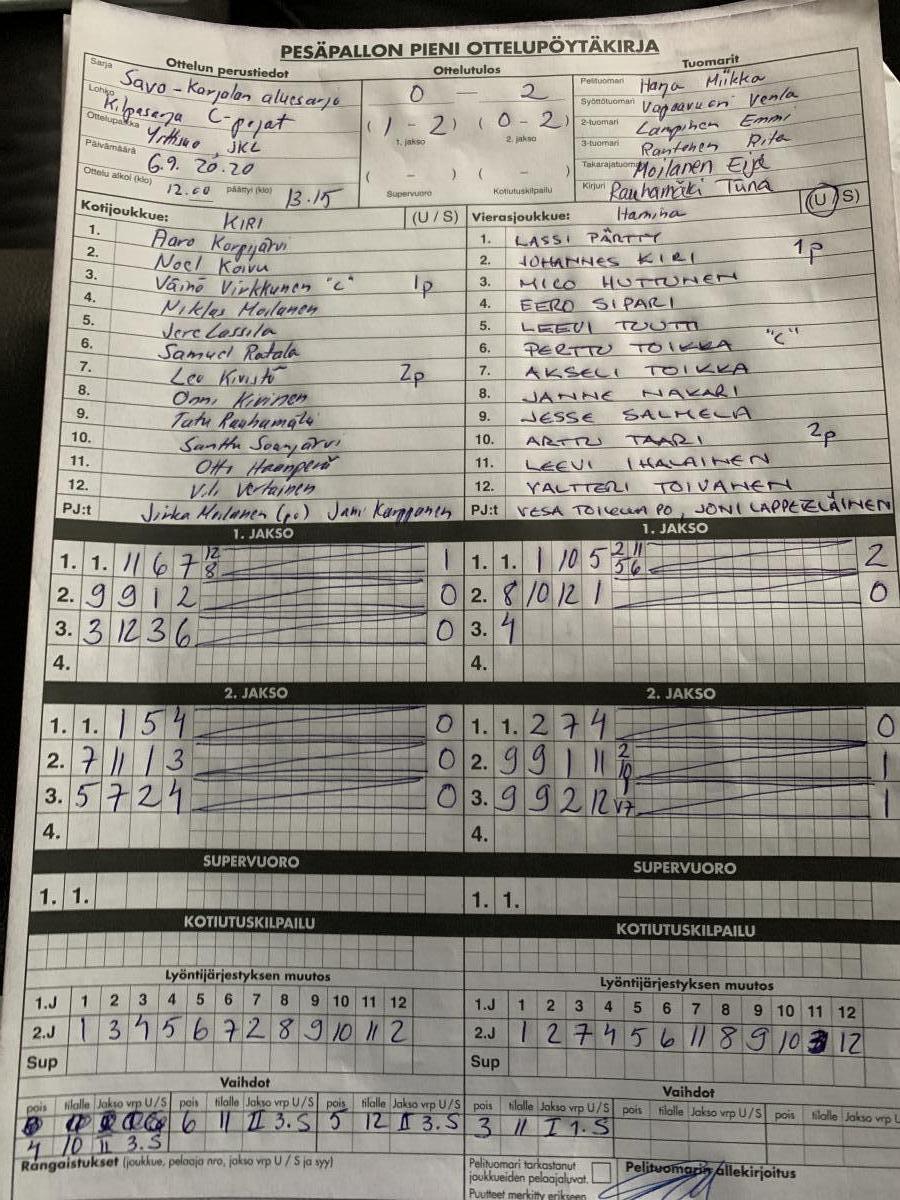 PESÄPALLON PIENI OTTELUPÖYTÄKIRJA
Ottelun perustiedot
Sarja Savo-Karjalan aluesarja
Lohko Kilpasarja C-pojat
Ottelupaikka JKL
Päivämäärä 6.9. 2020
Ottelu alkoi (klo) 12.00 päättyi (klo) 13.15
Ottelutulos
0 — 2
(1 - 2) (0 - 2)
1. jakso 2. jakso
( - ) ( - )
Supervuoro Kotiutuskilpailu
Tuomarit
Pelituomari Harja Miikka
Syöttötuomari Vapaavuori Venla
2-tuomari Lampinen Emmi
3-tuomari Rantanen Rita
Takarajatuomari Moilanen Eija
Kirjuri Rauhamäki Tuna
Kotijoukkue: KIRI (U / S)
1. Aaro Korpijärvi
2. Noel Koivu
3. Väinö Virkkunen "C" 1p
4. Niklas Moilanen
5. Jere Lassila
6. Samuel Ratala
7. Leo Kivistö 2p
8. Onni Kivinen
9. Tatu Rauhamäki
10. Santtu Soanjärvi
11. Otto Haanperä
12. Vertainen
PJ:t Jirka Moilanen (po) Jani Karppanen
Vierasjoukkue: Hamina (U / S)
1. LASSI PÄRTTY
2. JOHANNES KIRI 1p
3. MICO HUTTUNEN
4. EERO SIPARI
5. LEEVI TUUTTI
6. PERTTU TOIKKA "C"
7. AKSELI TOIKKA
8. JANNE NAKARI
9. JESSE SALMELA
10. ARTTU TAARI 2p
11. LEEVI IHALAINEN
12. VALTTERI TOIVANEN
PJ:t VESA PO, JONI LAPPETELÄINEN
1. JAKSO
1. 1. 11 6 7 12 8 1
2. 9 9 1 2 0
3. 3 12 3 6 0
4.
1. JAKSO
1. 1. 1 10 5 2 11 5 6 2
2. 8 10 12 1 0
3. 4
4.
2. JAKSO
1. 1. 1 5 4 0
2. 7 11 1 3 0
3. 5 7 2 4 0
4.
2. JAKSO
1. 1. 2 7 4 0
2. 9 9 1 11 2 10 1
3. 9 9 2 12 V7 1
4.
SUPERVUORO
1. 1.
SUPERVUORO
1. 1.
KOTIUTUSKILPAILU
KOTIUTUSKILPAILU
Lyöntijärjestyksen muutos
1.J 1 2 3 4 5 6 7 8 9 10 11 12
2.J 1 3 4 5 6 7 2 8 9 10 11 2
Sup
Lyöntijärjestyksen muutos
1.J 1 2 3 4 5 6 7 8 9 10 11 12
2.J 1 2 7 4 5 6 11 8 9 10 3 12
Sup
Vaihdot
pois tilalle Jakso vrp U / S pois tilalle Jakso vrp U / S pois tilalle Jakso vrp U / S
6 11 II 3.S 5 12 II 3.S
4 10 II 3.S
Vaihdot
pois tilalle Jakso vrp U / S pois tilalle Jakso vrp U / S pois tilalle Jakso vrp U
3 11 I 1.S
Rangaistukset (joukkue, pelaaja nro, jakso vrp U / S ja syy)
Pelituomari tarkastanut
joukkueiden pelaajaluvat.
Puutteet merkitty erikseen
Pelituomarin allekirjoitus